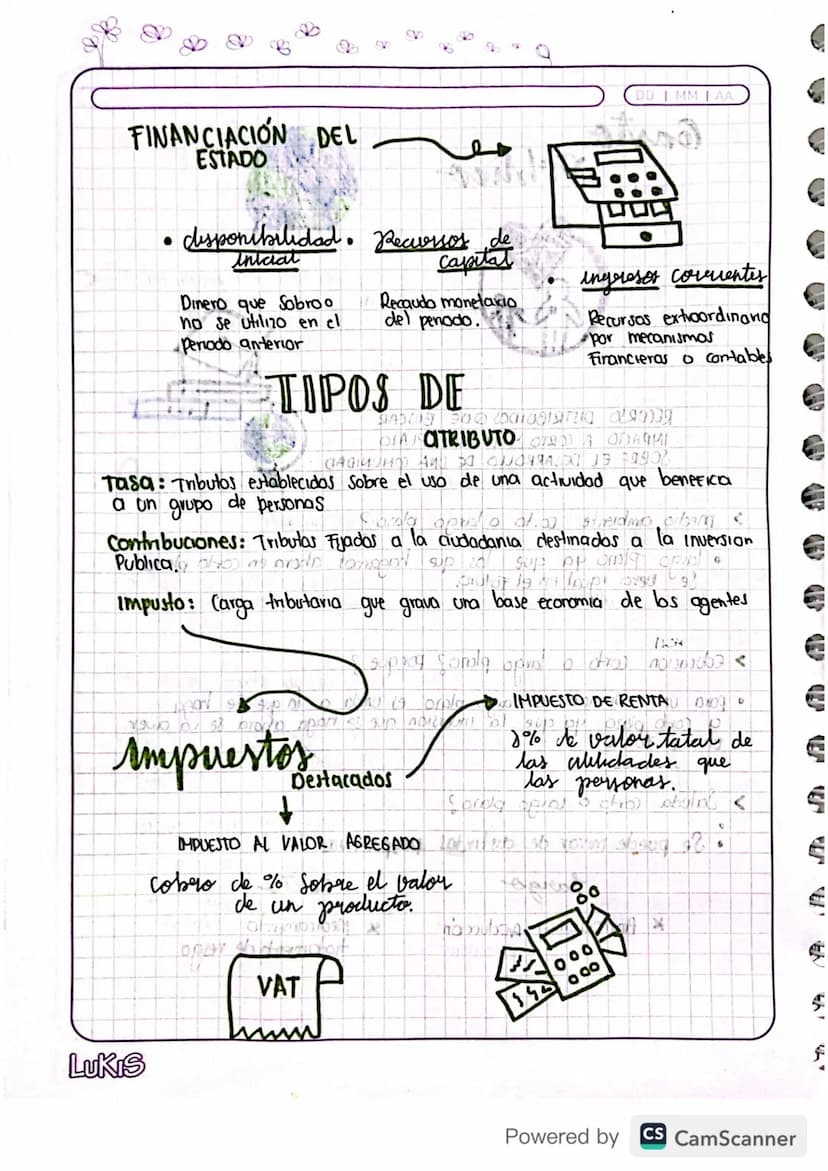 DD | MM | AA
FINANCIACIÓN DEL
ESTADO
• disponibilidad
inicial
Dinero que sobro o
no se utilizo en el
periodo anterior
• Recursos de
capital
Recaudo monetario
del periodo.
• Ingresos corrientes
Recursos extraordinario
por mecanismos
Financieros o contables
TIPOS DE
atributo
Tasa: Tributos establecidos sobre el uso de una actividad que benefica
a un grupo de personas
Contribuciones: Tributos Fijados a la ciudadania destinados a la inversion
Publica.
Impusto: Carga tributaria que grava una base economia de los agentes
Impuestos
Destacados
IMPUESTO DE RENTA
% de valor tatal de
las utilidades que
las personas.
IMPUESTO AL VALOR AGREGADO
Cobro de % sobre el valor
de un producto.
VAT
LUKIS
Powered by CS CamScanner